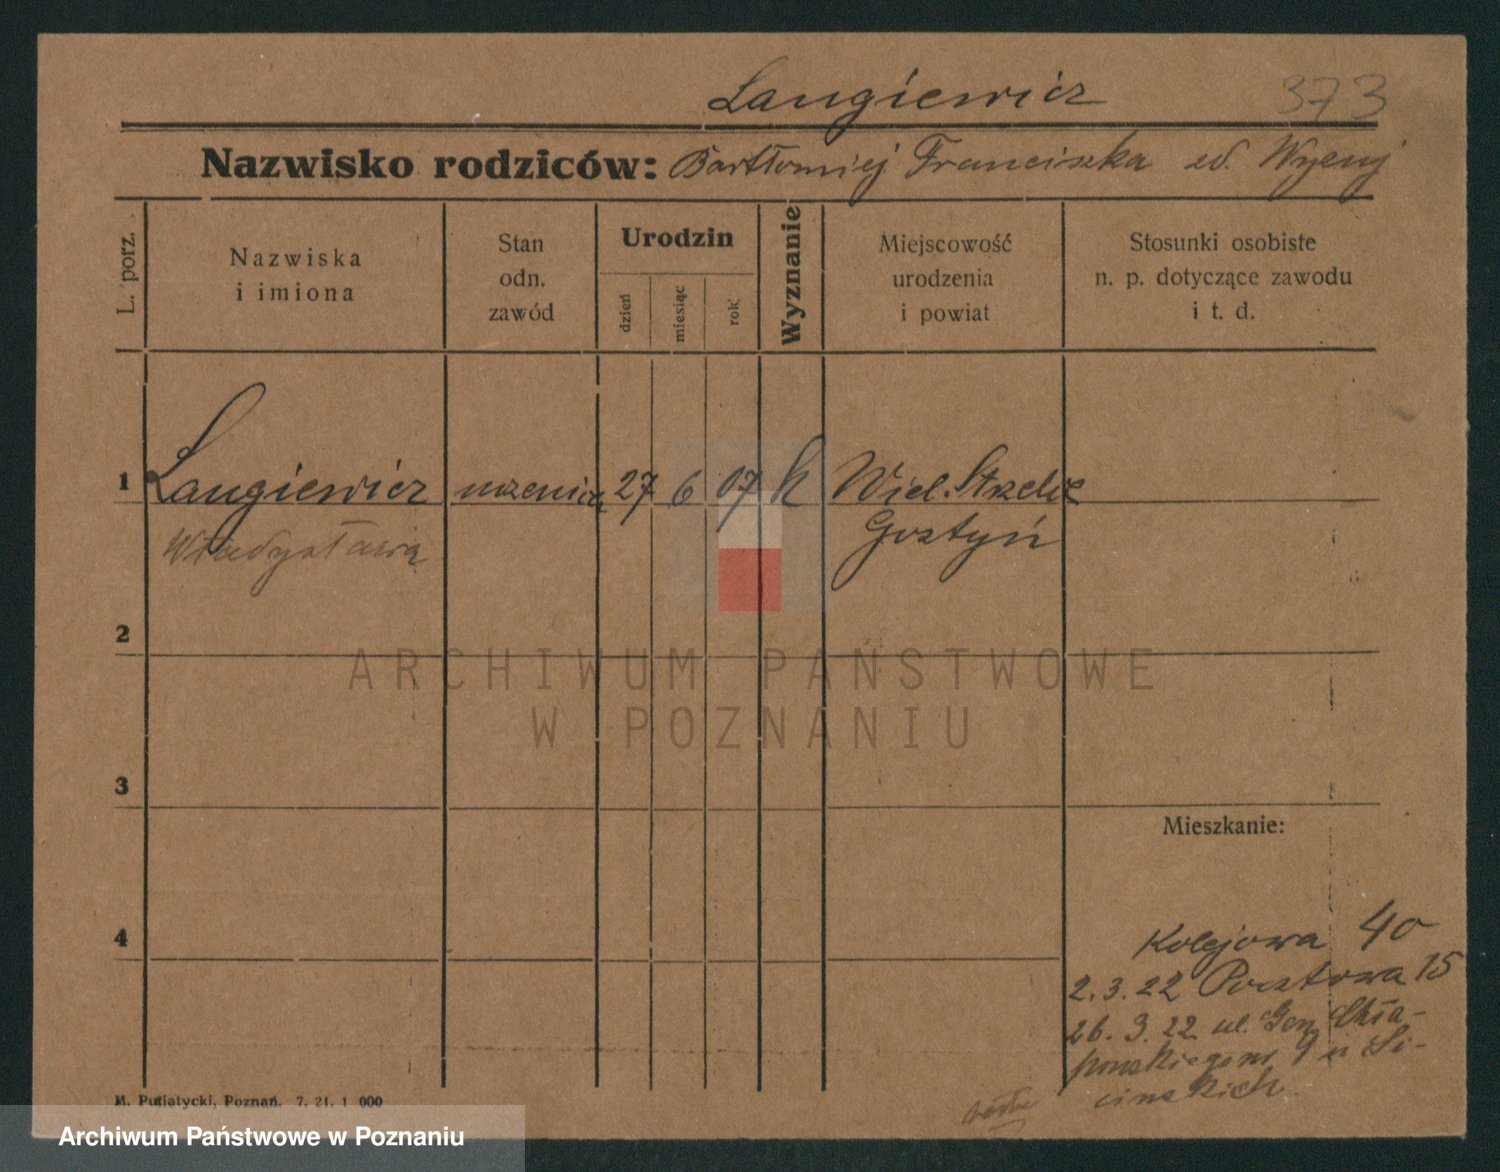 Langiewicz 373
Nazwisko rodziców: Bartłomiej Franciszka zd.
L. porz.
Nazwiska
i imiona
Stan
odn.
zawód
Urodzin
dzień
miesiąc
rok
Wyznanie
Miejscowość
urodzenia
i powiat
Stosunki osobiste
n. p. dotyczące zawodu
i t. d.
1 Langiewicz uczenica 27 6 07 k Wiel. Strzelce
Władysława Gostyń
2
ARCHIWUM PAŃSTWOWE
W POZNANIU
3
Mieszkanie:
4
Kolejowa 40
2.3.22 Pocztowa 15
26. 9. 22 ul. Gen. Chła-
powskiego nr 9 u
M. Putiatycki, Poznań. 7. 21. 1 000
Archiwum Państwowe w Poznaniu